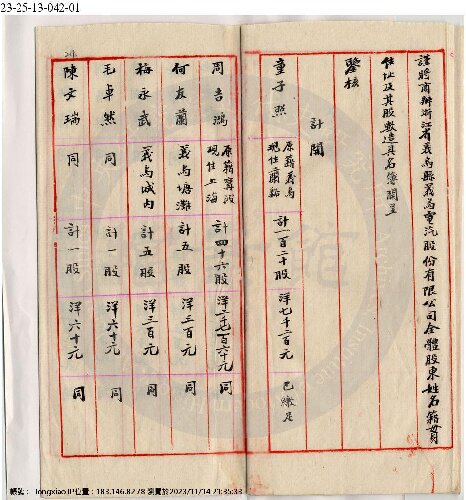 23-25-13-042-01
謹將商辦浙江省義烏縣義烏電汽股份有限公司全體股東姓名籍貫
住址及其股數造具名簿開呈
鑒核
計開
童子照 原籍義烏 現住蘭谿 計一百二十股 洋七千二百元 已繳足
周吉鴻 原籍寧波 現住上海 計四十六股 洋二千七百六十元 同
何友蘭 義烏塘灘 計五股 洋三百元 同
梅永武 義烏城內 計五股 洋三百元 同
毛卓然 同 計一股 洋六十元 同
陳文瑞 同 計一股 洋六十元 同
帳號： Tongxiao IP位置：183.146.82.78 瀏覽於2023/11/14 21:35:33